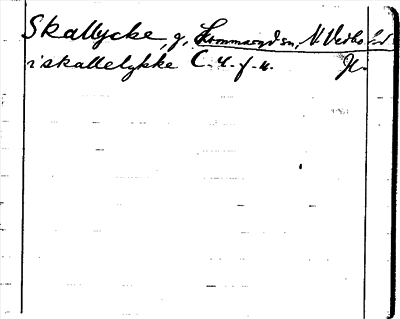 Skallycke, g, Kommaryd sn, N. Vedbo hd
i skallelykke C. 4. f.